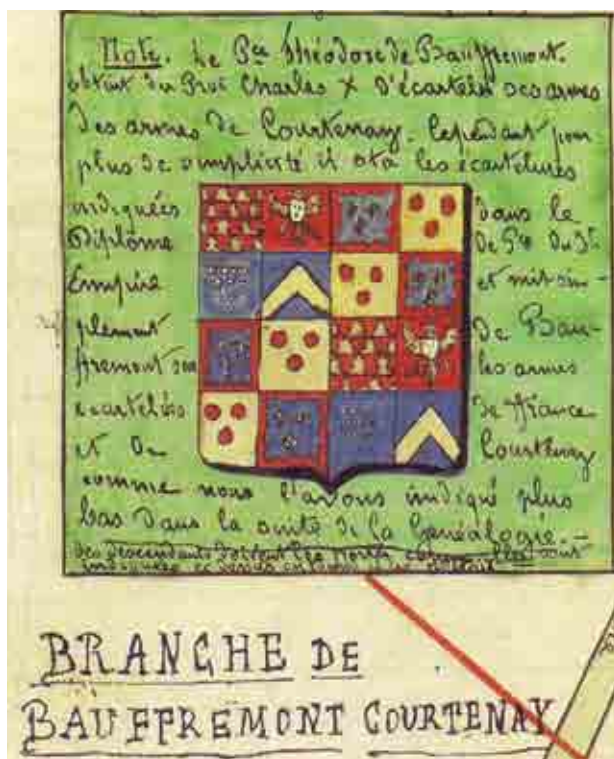 Note. Le Pce Théodore de Bauffremont.
obtint du Roi Charles X d'écarteler ses armes
des armes de Courtenay. Cependant pour
plus de simplicité il ota les écartelures
indiquées dans le
Diplôme de Pce du St
Empire et mit sim-
plement de Bau-
ffremont les armes
écartelées de France
et de Courtenay
comme nous l'avons indiqué plus
bas dans la suite de la Généalogie. -
des descendants doivent les porter
indiquées
BRANCHE DE
BAUFFREMONT COURTENAY